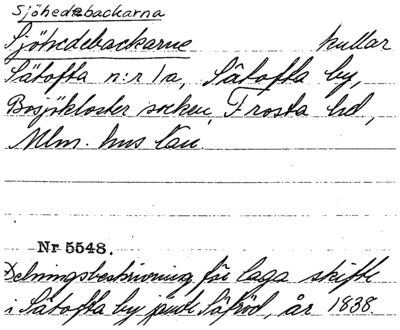 Sjöhedebackarna
Sjöhedebackarne kullar
Sätofta n:r 1a, Sätofta by,
Bosjökloster socken, Frosta hd,
Mlm. hus län.
Nr 5548.
Delningsbeskrivning för laga skifte
i Sätofta by jämte år 1838